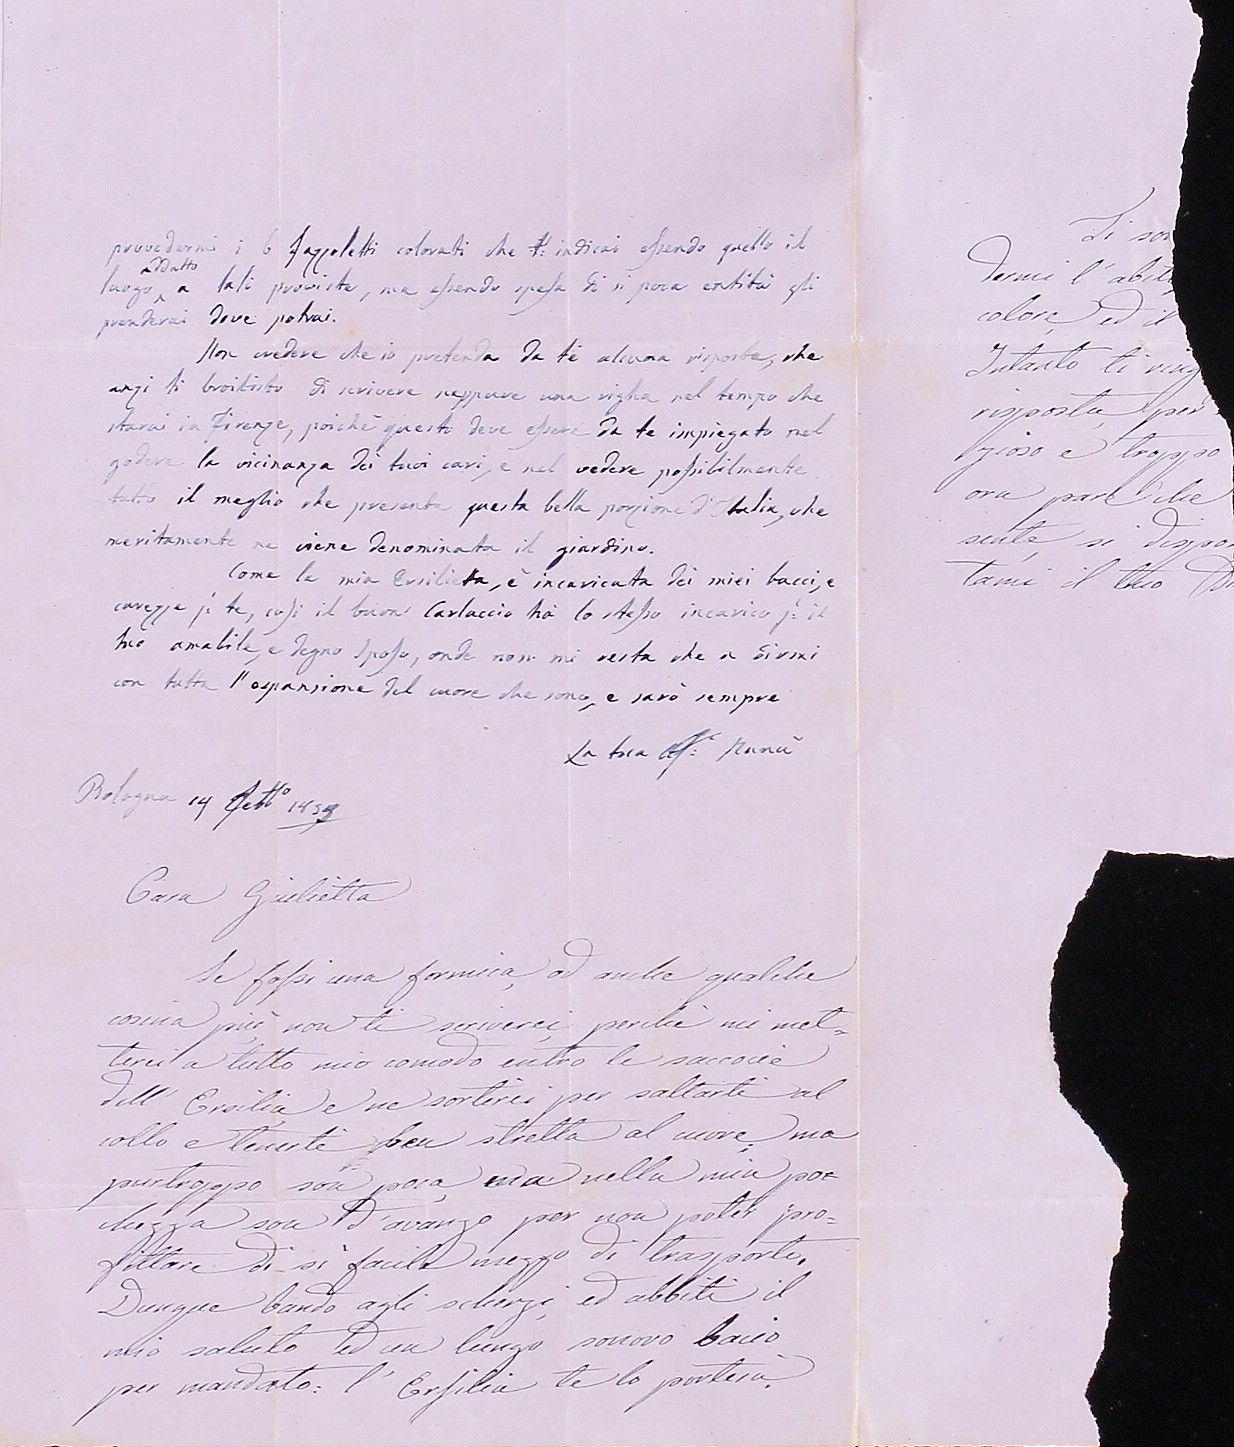 provedermi i 6 fazzoletti colorati che t: indicai essendo quello il
addatto
luogo, a tali proviste, ma essendo spesa di sì poca entità gli
prenderai dove potrai.
Non credere che io pretenda da te alcuna risposta, che
anzi ti proibisco di scrivere neppure una righa nel tempo che
starai in Firenze, poichè questo deve essere da te impiegato nel
godere la vicinanza dei tuoi cari, e nel vedere possibilmente
tutto il meglio che presenta questa bella porzione d'Italia, che
meritamente ne viene denominata il giardino.
Come la mia Ersilietta, è incaricata dei miei bacci, e
carezze p: te, così il buon Carluccio hà lo stesso incarico p: il
tuo amabile, e degno sposo, onde non mi resta che a dirmi
con tutta l'espansione del cuore che sono, e sarò sempre
La tua Aff: Nunù
Bologna 14 Sett.º
Cara Giulietta
Se fossi una formica, od anche qualche
cosina più non ti scriverei, perchè mi met-
terei a tutto mio comodo entro le saccocie
dell' Ersilia e ne sortirei per saltarti al
collo e tenerti ben stretta al cuore; ma
purtroppo son poca, ma nella mia po-
chezza son d'avanzo per non poter pro-
fittare di sì facile mezzo di trasporto.
Dunque bando agli scherzi, ed abbiti il
mio saluto ed un lungo sonoro bacio
per mandato: l' Ersilia te lo porterà.
Ti son
darmi l'abit
colore, ed il
Intanto ti
risposta, per
zioso è troppo
ora pare che
sente, si dispo
tami il tuo